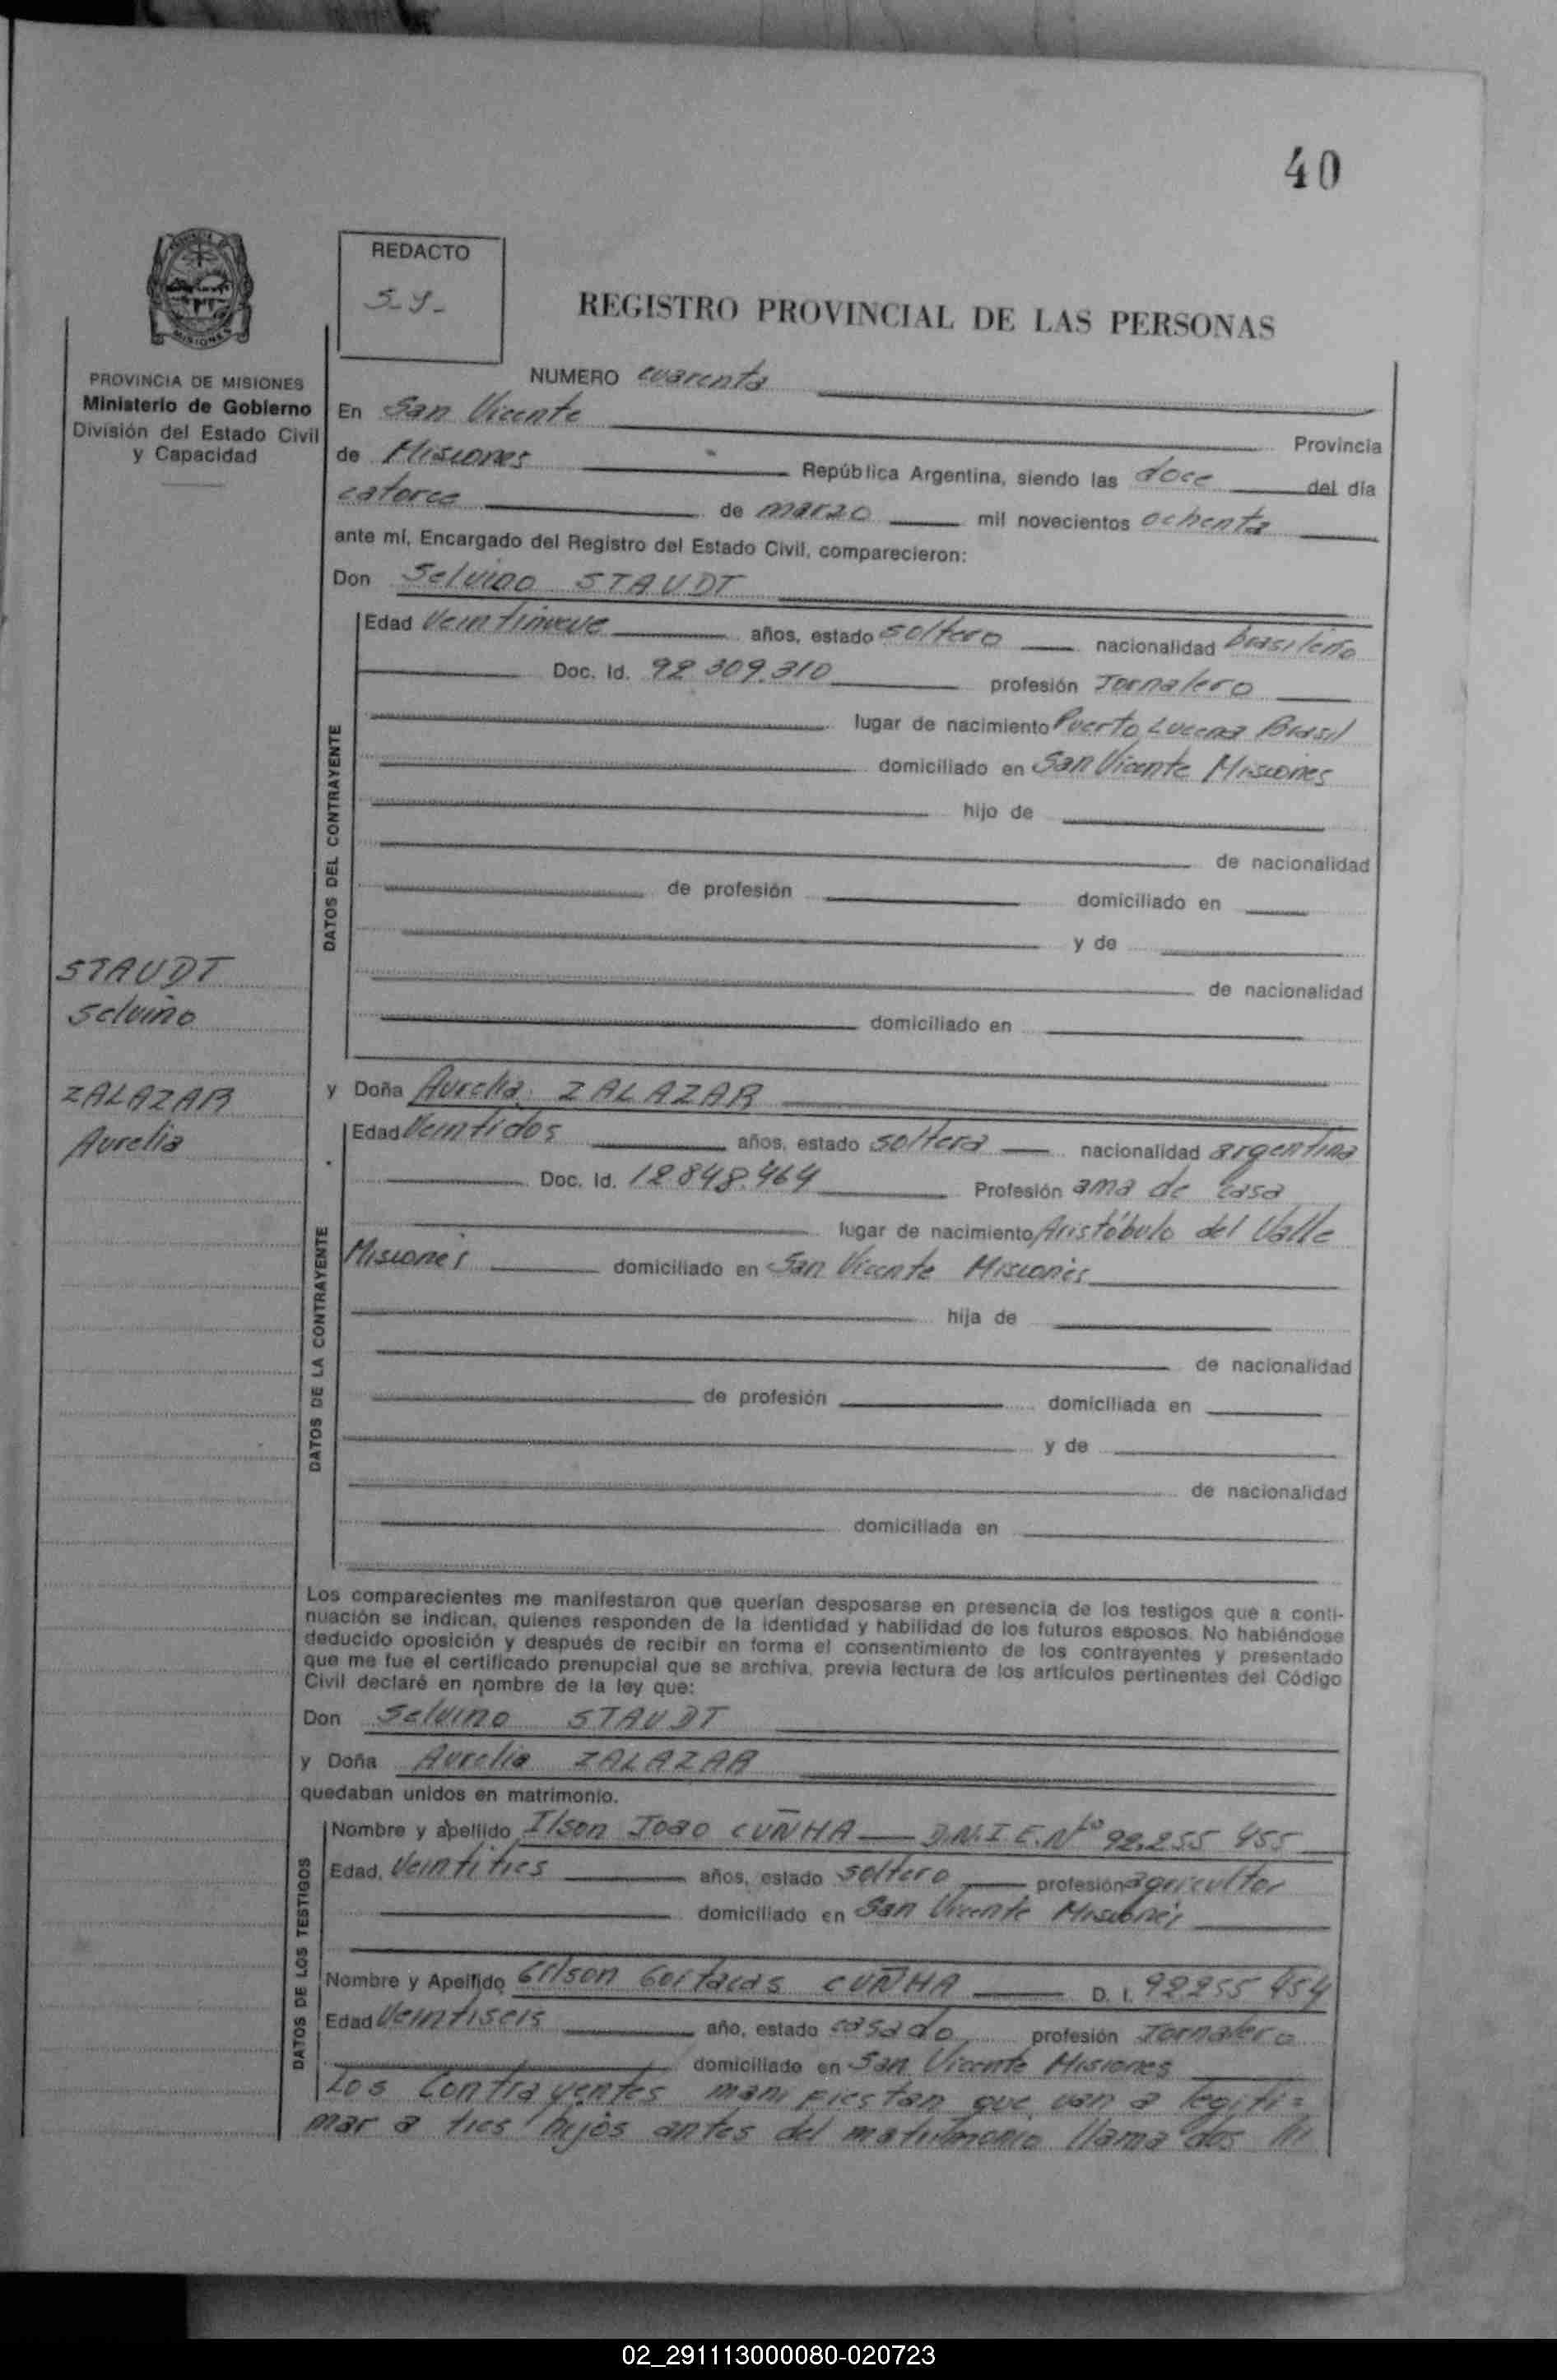 40
REDACTO
S-J-
REGISTRO PROVINCIAL DE LAS PERSONAS
PROVINCIA DE MISIONES
Ministerio de Gobierno
División del Estado Civil
y Capacidad
NUMERO cuarenta
En San Vicente Provincia
de Misiones República Argentina, siendo las doce del día
catorce de marzo mil novecientos ochenta
ante mí, Encargado del Registro del Estado Civil, comparecieron:
Don Selvino STAUDT
DATOS DEL CONTRAYENTE
Edad Veintinueve años, estado soltero nacionalidad brasileño
Doc. Id. 92 309.310 profesión Jornalero
lugar de nacimiento Puerto Lucena Brasil
domiciliado en San Vicente Misiones
hijo de
de nacionalidad
de profesión domiciliado en
y de
de nacionalidad
domiciliado en
STAUDT
Selvino
ZALAZAR
Aurelia
y Doña Aurelia ZALAZAR
DATOS DE LA CONTRAYENTE
Edad Veintidos años, estado soltera nacionalidad argentina
Doc. Id. 12.848.464 Profesión ama de casa
lugar de nacimiento Aristóbulo del Valle
Misiones domiciliado en San Vicente Misiones
hija de
de nacionalidad
de profesión domiciliada en
y de
de nacionalidad
domiciliada en
Los comparecientes me manifestaron que querían desposarse en presencia de los testigos que a conti-
nuación se indican, quienes responden de la identidad y habilidad de los futuros esposos. No habiéndose
deducido oposición y después de recibir en forma el consentimiento de los contrayentes y presentado
que me fue el certificado prenupcial que se archiva, previa lectura de los artículos pertinentes del Código
Civil declaré en nombre de la ley que:
Don Selvino STAUDT
y Doña Aurelia ZALAZAR
quedaban unidos en matrimonio.
DATOS DE LOS TESTIGOS
Nombre y apellido Ilson Joao CUÑHA D.N.I.E.Nº 92.255 455
Edad, Veintitres años, estado soltero profesión agricultor
domiciliado en San Vicente Misiones
Nombre y Apellido Gilson CUÑHA D. I. 92255 454
Edad Veintiseis año, estado casado profesión Jornalero
domiciliado en San Vicente Misiones
Los Contrayentes manifiestan que van a legiti=
mar a tres hijos antes del matrimonio llamados
02_291113000080-020723